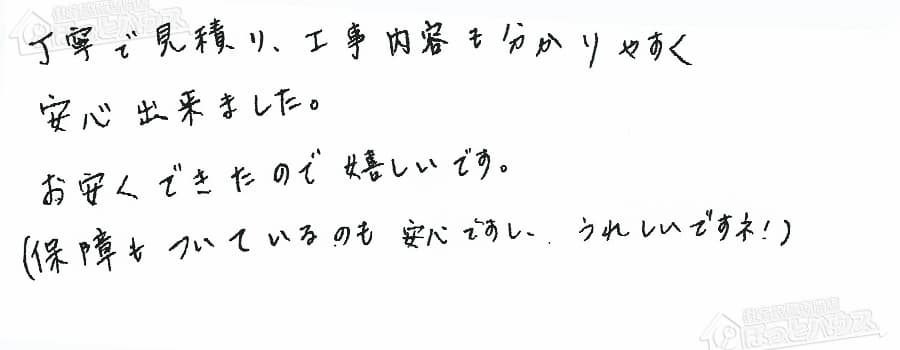 丁寧で見積り、工事内容も分かりやすく
安心出来ました。
お安くできたので嬉しいです。
(保障もついているのも安心ですし、うれしいですネ!)
ほっとハウス